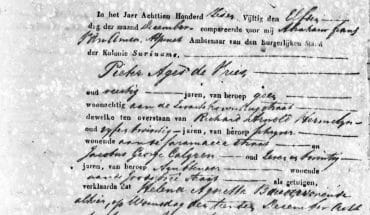 In het Jaar Achttien Honderd Zes en Vijftig den Elfden
dag der maand December compareerde voor mij Abraham
Ambtenaar van den burgerlijken Stand
der Kolonie Suriname.
Pieter Ager de Vries
oud veertig jaren, van beroep geen
woonachtig aan de Zwartenhovenbrugstraat
dewelke ten overstaan van Richard Arnold Hermelyn
oud vyf en twintig jaren, van beroep schryver
wonende aan de Saramacca straat en
Jacobus George Calgren oud Zeven en twintig
jaren, van beroep Ambtenaar wonende
aan de straat als getuigen,
verklaarde dat Helena Agnetta wonende
alhier, op Woensdag den tienden December